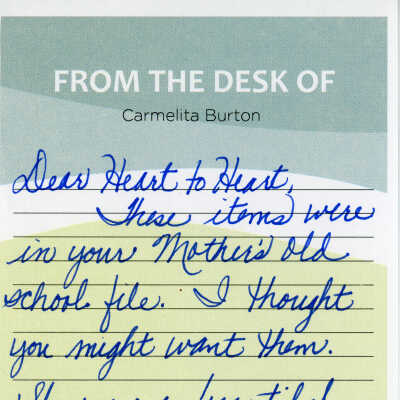 FROM THE DESK OF
Carmelita Burton
Dear Heart to Heart,
These items were
in your Mother's old
school file. I thought
you might want them.